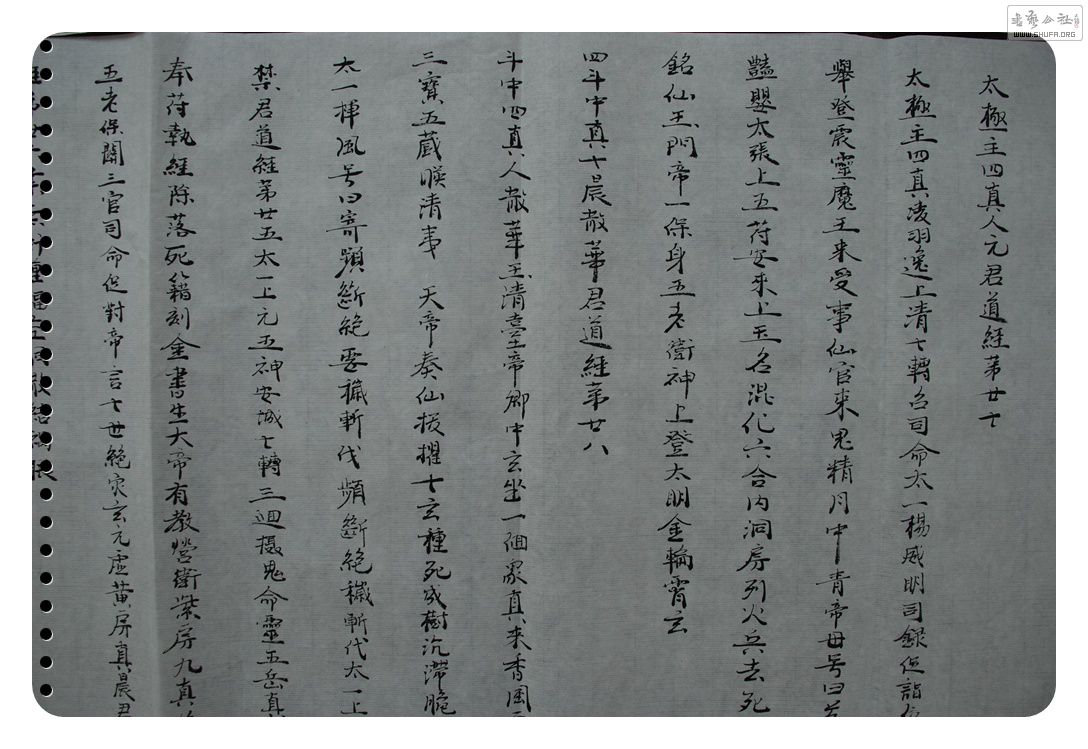 太極主四真人元君道經第廿七
太極主四真淩羽逸上清七轉召司命太一楊威明司録促詣
舉登震靈魔王来受事仙官来鬼精月中青帝母号曰
豔嬰太張上五苻安来上玉名混化六合内洞房列火兵去死
銘仙玉門帝一保身五老衛神上登太明金輪霄玄
四斗中真七晨散華君道經第廿八
斗中四真人散華玉清臺帝卿中玄坐一個眾真来香風
三寶五蔵暎清 天帝奏仙掖擢七玄種死成樹沉滯脆
太一揮風号曰寄頻斷絶要穢斬伐頻斷絶穢斬代太一上
禁君道經第廿五太一上元五神安城七轉三迴攝鬼命靈五岳真
奉苻執經除落死籍刻金書生大帝有教營衛紫房九真
五老保關三官司命促對帝言七世絶玄元虛黄房真晨君
书艺公社
WWW.SHUFA.ORG